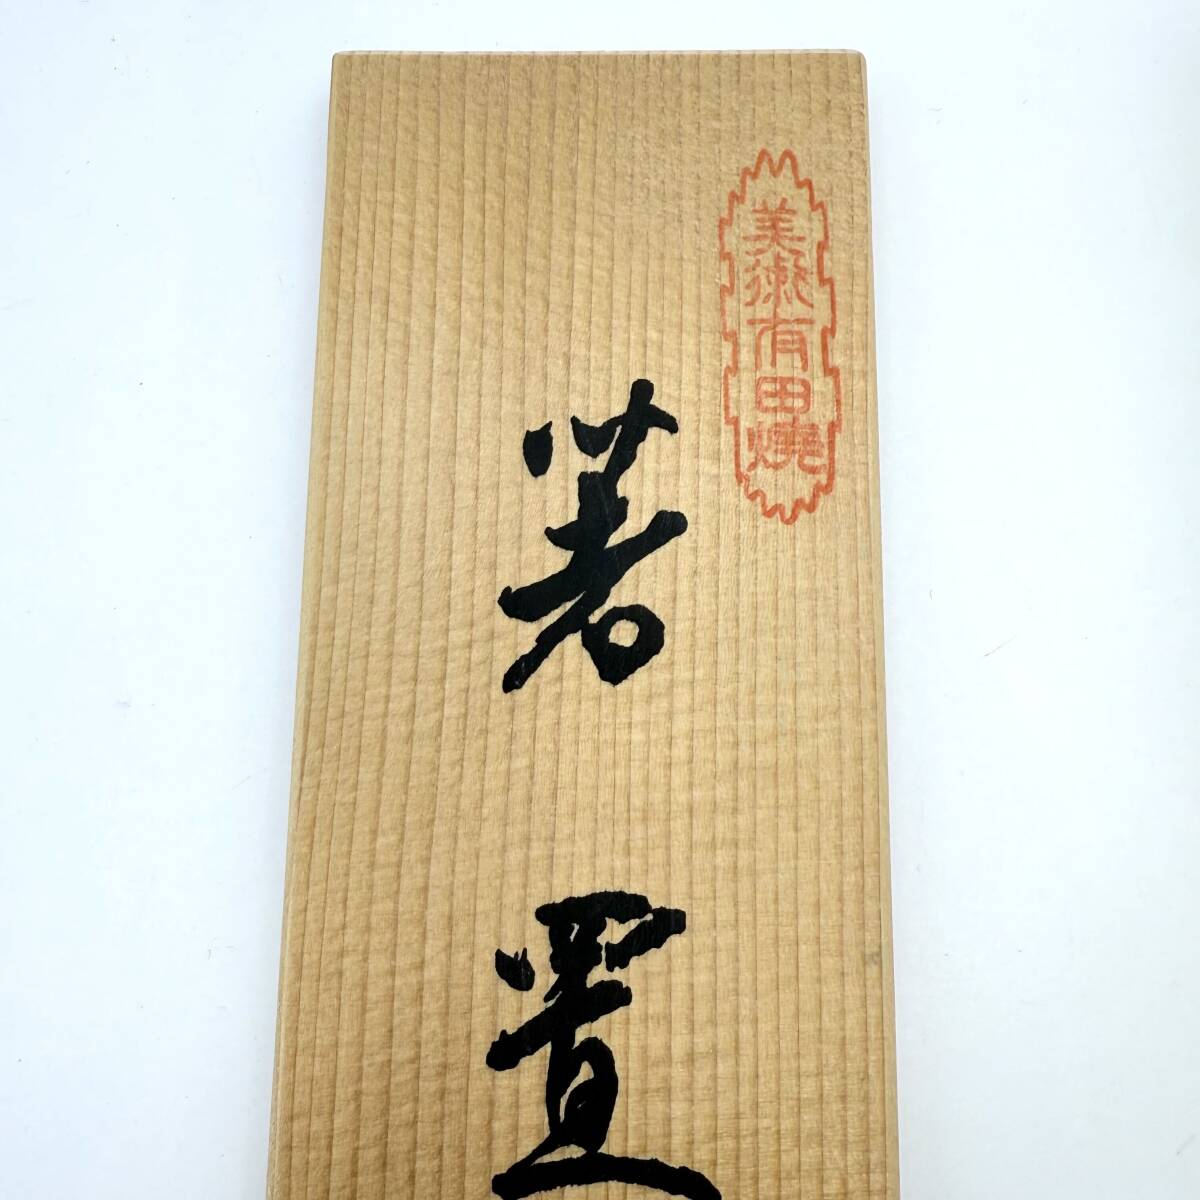 美術有田焼
箸置